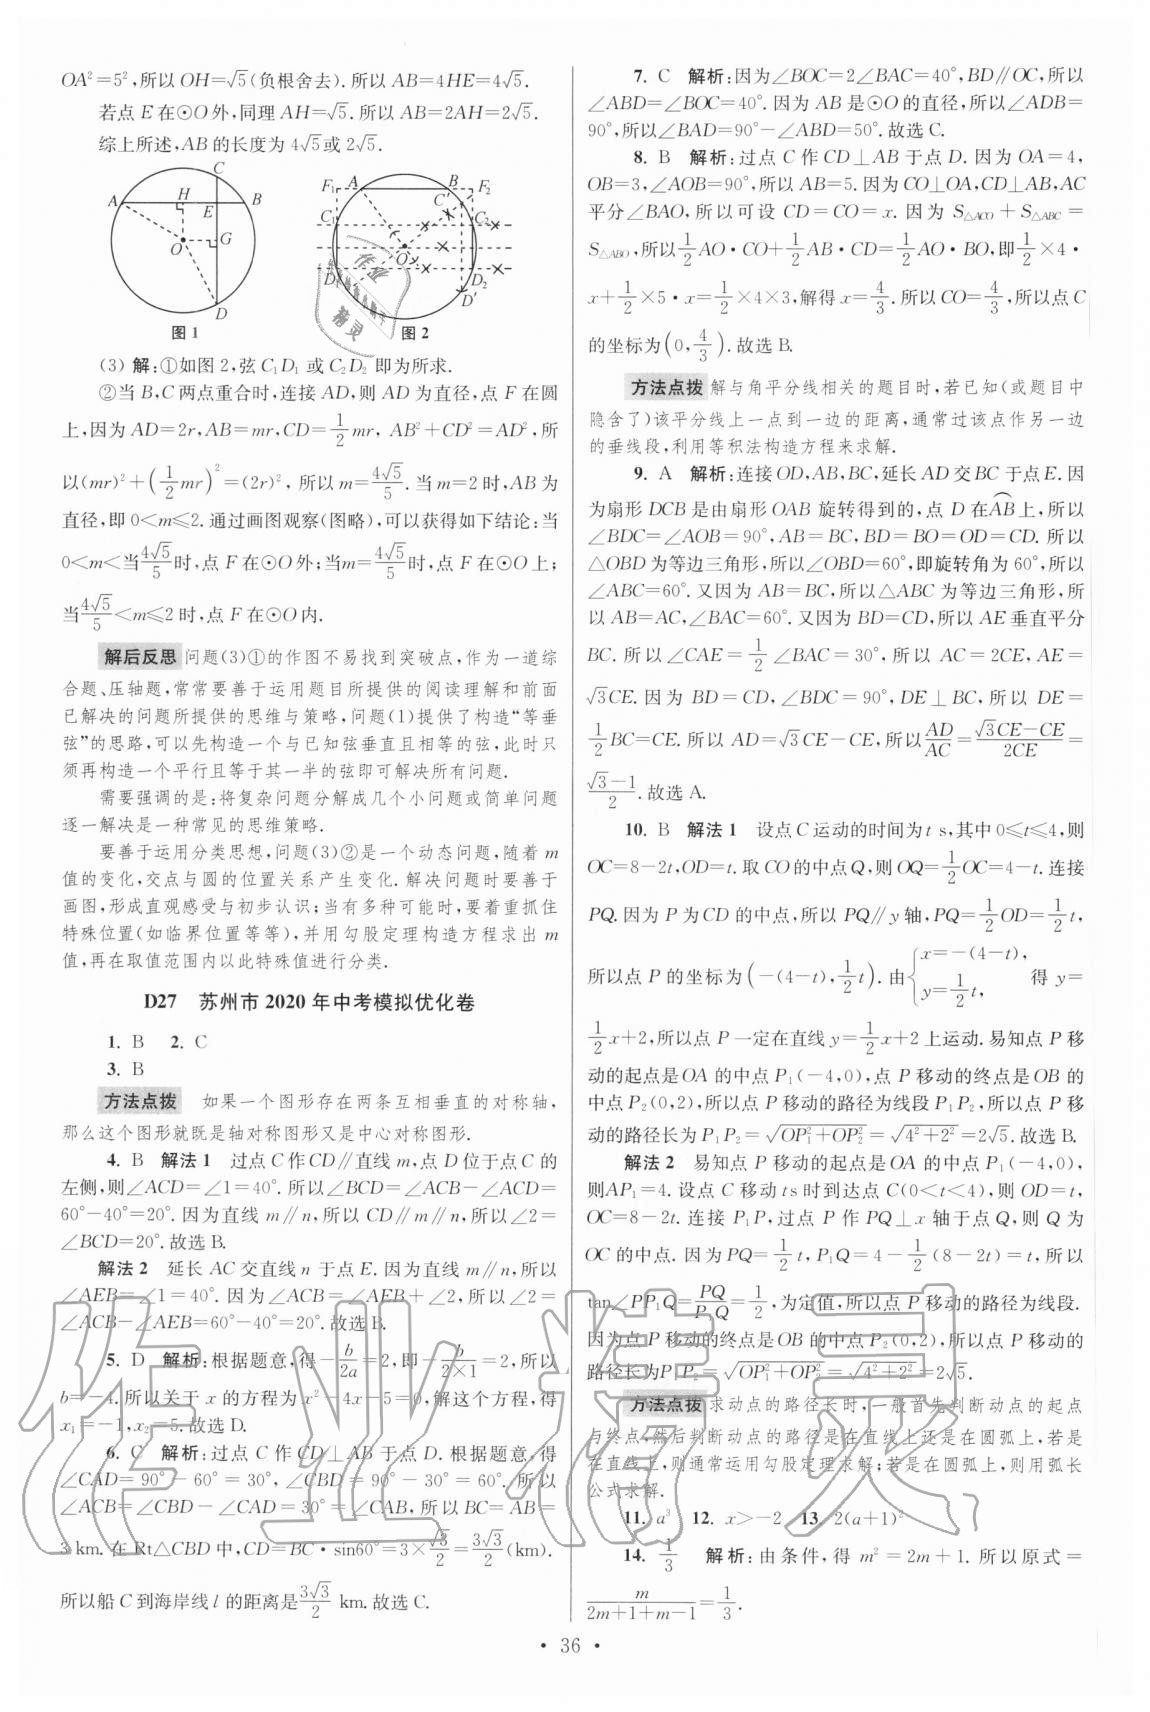 OA²=5²,所以 OH=√5(负根舍去).所以 AB=4HE=4√5.
若点 E 在⊙O 外,同理 AH=√5.所以 AB=2AH=2√5.
综上所述,AB 的长度为 4√5或 2√5.
C
H
A
B
E
O
G
D
图 1
F₁
A
B
F₂
C′
C₁
C₂
O
D₁
D₂
D′
图 2
(3) 解:①如图 2,弦 C₁D₁ 或 C₂D₂ 即为所求.
②当 B,C 两点重合时,连接 AD,则 AD 为直径,点 F 在圆
上,因为 AD=2r,AB=mr,CD=1/2mr, AB²+CD²=AD²,所
以(mr)²+(1/2mr)²=(2r)²,所以 m=4√5/5.当 m=2 时,AB 为
直径,即 0<m≤2.通过画图观察(图略),可以获得如下结论:当
0<m<当4√5/5时,点 F 在⊙O 外;当m=4√5/5时,点 F 在⊙O 上;
当4√5/5<m≤2 时,点 F 在⊙O 内.
解后反思 问题(3)①的作图不易找到突破点,作为一道综
合题、压轴题,常常要善于运用题目所提供的阅读理解和前面
已解决的问题所提供的思维与策略,问题(1)提供了构造“等垂
弦”的思路,可以先构造一个与已知弦垂直且相等的弦,此时只
须再构造一个平行且等于其一半的弦即可解决所有问题.
需要强调的是:将复杂问题分解成几个小问题或简单问题
逐一解决是一种常见的思维策略.
要善于运用分类思想,问题(3)②是一个动态问题,随着 m
值的变化,交点与圆的位置关系产生变化.解决问题时要善于
画图,形成直观感受与初步认识;当有多种可能时,要着重抓住
特殊位置(如临界位置等等),并用勾股定理构造方程求出 m
值,再在取值范围内以此特殊值进行分类.
D27 苏州市 2020 年中考模拟优化卷
1. B 2. C
3. B
方法点拨 如果一个图形存在两条互相垂直的对称轴,
那么这个图形就既是轴对称图形又是中心对称图形.
4. B 解法 1 过点 C 作 CD∥直线 m,点 D 位于点 C 的
左侧,则∠ACD=∠1=40°.所以∠BCD=∠ACB-∠ACD=
60°-40°=20°.因为直线 m∥n,所以 CD∥m∥n,所以∠2=
∠BCD=20°.故选 B.
解法 2 延长 AC 交直线 n 于点 E.因为直线 m∥n,所以
∠AEB=∠1=40°.因为∠ACB=∠AEB+∠2,所以∠2=
∠ACB-∠AEB=60°-40°=20°.故选 B.
5. D 解析:根据题意,得-b/2a=2,即-b/2×1=2,所以
b=-4.所以关于 x 的方程为 x²-4x-5=0,解这个方程,得
x₁=-1,x₂=5.故选 D.
6. C 解析:过点 C 作 CD⊥AB 于点 D.根据题意,得
∠CAD=90°-60°=30°,∠CBD=90°-30°=60°.所以
∠ACB=∠CBD-∠CAD=30°=∠CAB,所以 BC=AB=
3 km.在 Rt△CBD 中,CD=BC·sin60°=3×√3/2=3√3/2(km).
所以船 C 到海岸线 l 的距离是3√3/2 km.故选 C.
7. C 解析:因为∠BOC=2∠BAC=40°,BD∥OC,所以
∠ABD=∠BOC=40°.因为 AB 是⊙O 的直径,所以∠ADB=
90°,所以∠BAD=90°-∠ABD=50°.故选 C.
8. B 解析:过点 C 作 CD⊥AB 于点 D.因为 OA=4,
OB=3,∠AOB=90°,所以 AB=5.因为 CO⊥OA,CD⊥AB,AC
平分∠BAO,所以可设 CD=CO=x.因为 S△ACO+S△ABC=
S△ABO,所以1/2AO·CO+1/2AB·CD=1/2AO·BO,即1/2×4·
x+1/2×5·x=1/2×4×3,解得 x=4/3.所以 CO=4/3,所以点 C
的坐标为(0,4/3).故选 B.
方法点拨 解与角平分线相关的题目时,若已知(或题目中
隐含了)该平分线上一点到一边的距离,通常过该点作另一边
的垂线段,利用等积法构造方程来求解.
9. A 解析:连接 OD,AB,BC,延长 AD 交 BC 于点 E.因
为扇形 DCB 是由扇形 OAB 旋转得到的,点 D 在A͡B上,所以
∠BDC=∠AOB=90°,AB=BC,BD=BO=OD=CD.所以
△OBD 为等边三角形,所以∠OBD=60°,即旋转角为 60°,所以
∠ABC=60°.又因为 AB=BC,所以△ABC 为等边三角形,所
以 AB=AC,∠BAC=60°.又因为 BD=CD,所以 AE 垂直平分
BC.所以∠CAE=1/2∠BAC=30°,所以 AC=2CE,AE=
√3CE.因为 BD=CD,∠BDC=90°,DE⊥BC,所以 DE=
1/2BC=CE.所以 AD=√3CE-CE,所以AD/AC=√3CE-CE/2CE=
√3-1/2.故选 A.
10. B 解法 1 设点 C 运动的时间为 t s,其中 0≤t≤4,则
OC=8-2t,OD=t.取 CO 的中点 Q,则 OQ=1/2OC=4-t.连接
PQ.因为 P 为 CD 的中点,所以 PQ∥y 轴,PQ=1/2OD=1/2t,
所以点 P 的坐标为(-(4-t),1/2t).由{x=-(4-t), y=1/2t, 得 y=
1/2x+2,所以点 P 一定在直线 y=1/2x+2 上运动.易知点 P 移
动的起点是 OA 的中点 P₁(-4,0),点 P 移动的终点是 OB 的
中点 P₂(0,2),所以点 P 移动的路径为线段 P₁P₂,所以点 P 移
动的路径长为 P₁P₂=√(OP₁²+OP₂²)=√(4²+2²)=2√5.故选 B.
解法 2 易知点 P 移动的起点是 OA 的中点 P₁(-4,0),
则AP₁=4.设点 C 移动 t s 时到达点 C(0<t<4),则 OD=t,
OC=8-2t.连接 P₁P,过点 P 作 PQ⊥x 轴于点 Q,则 Q 为
OC 的中点.因为 PQ=1/2t,P₁Q=4-1/2(8-2t)=t,所以
tan∠PP₁Q=PQ/P₁Q=1/2,为定值,所以点 P 移动的路径为线段.
因为点 P 移动的终点是 OB 的中点 P₂(0,2),所以点 P 移动的
路径长为P₁P₂=√(OP₁²+OP₂²)=√(4²+2²)=2√5.
方法点拨 求动点的路径长时,一般首先判断动点的起点
与终点,然后判断动点的路径是在直线上还是在圆弧上,若是
在直线上,则通常运用勾股定理求解;若是在圆弧上,则用弧长
公式求解.
11. a³ 12. x>-2 13. 2(a+1)²
14. 1/3 解析:由条件,得 m²=2m+1.所以原式=
m/2m+1+m-1=1/3.
· 36 ·
作业精灵
作业
精灵